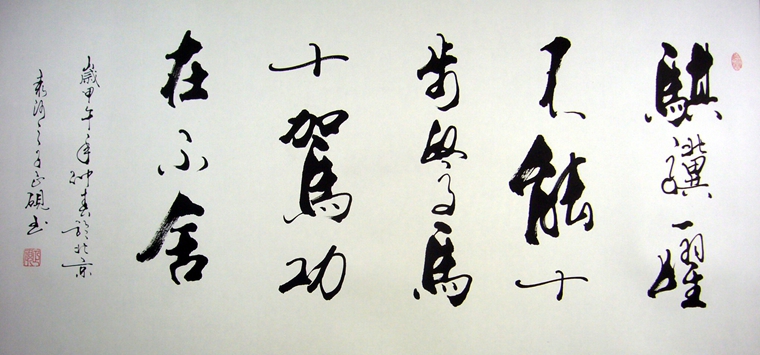 騏驥一躍
不能十
步駑馬
十駕功
在不舍
歲甲午年仲春於北京
硯书